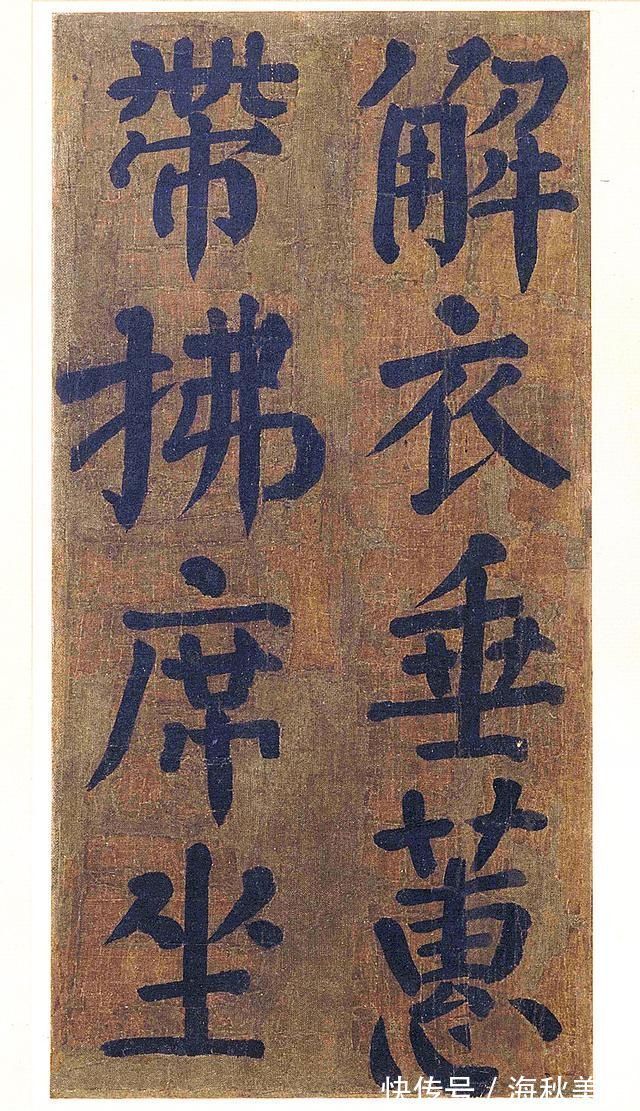 解衣垂蕙
帶拂席坐
快传号 / 海秋美